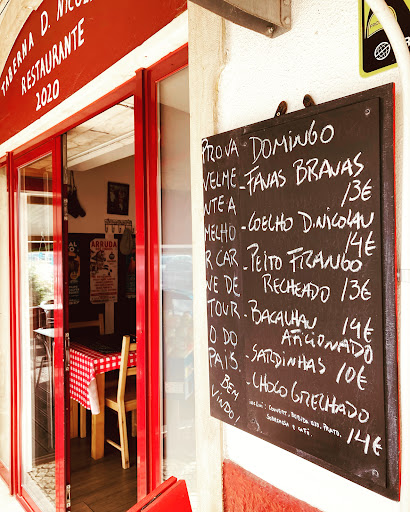 TABERNA D. NICOL
RESTAURANTE
2020
PROVA
VELME
NTE A
MELHO
R CAR
NE DE
TOUR
O DO
PAÍS.
BEM
VINDO!
- DOMINGO
- FAVAS BRAVAS
13€
- COELHO D. NICOLAU
14€
- PEITO FRANGO
RECHEADO 13€
- BACALHAU 14€
AFICIONADO
- SARDINHAS 10€
- CHOCO GRELHADO
INCLUI: COUVERT, BEBIDA, PRATO,
SOBREMESA E CAFÉ. 14€
ARRUDA